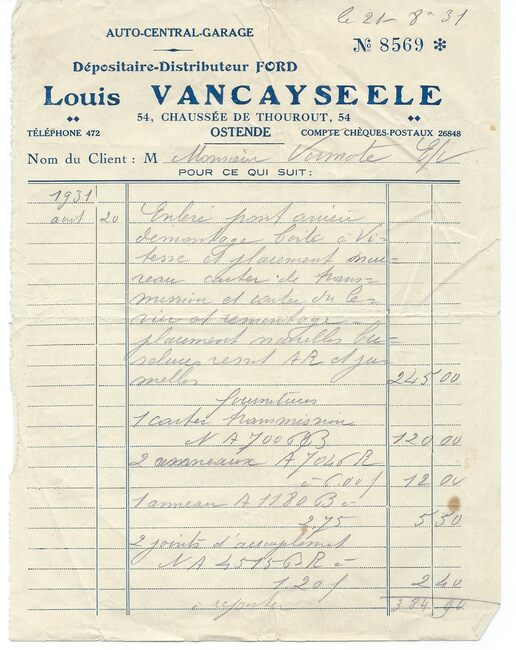 le 21-8-31
AUTO-CENTRAL-GARAGE
№ 8569 *
Dépositaire-Distributeur FORD
Louis VANCAYSEELE
54, CHAUSSÉE DE THOUROUT, 54
TÉLÉPHONE 472 OSTENDE COMPTE CHÈQUES-POSTAUX 26848
Nom du Client : M Monsieur Vormote E/V
POUR CE QUI SUIT :
1931
août 20 Enlevé pont arrière
démontage boite à Vi-
tesse et placement nou-
veau carter de trans-
mission et carter du le-
vier et remontage
placement nouvelles bu-
selures ressort AR et ju-
melles 245 00
fournitures
1 carter transmission
N A 7006 B 120 00
2 anneaux A 7046 R
à 6.00 f 12 00
1 anneau A 1180 B à
2,75 5 50
2 joints d'accouplement
N A 4515 B R à
1.20 f 2 40
à reporter 384 90